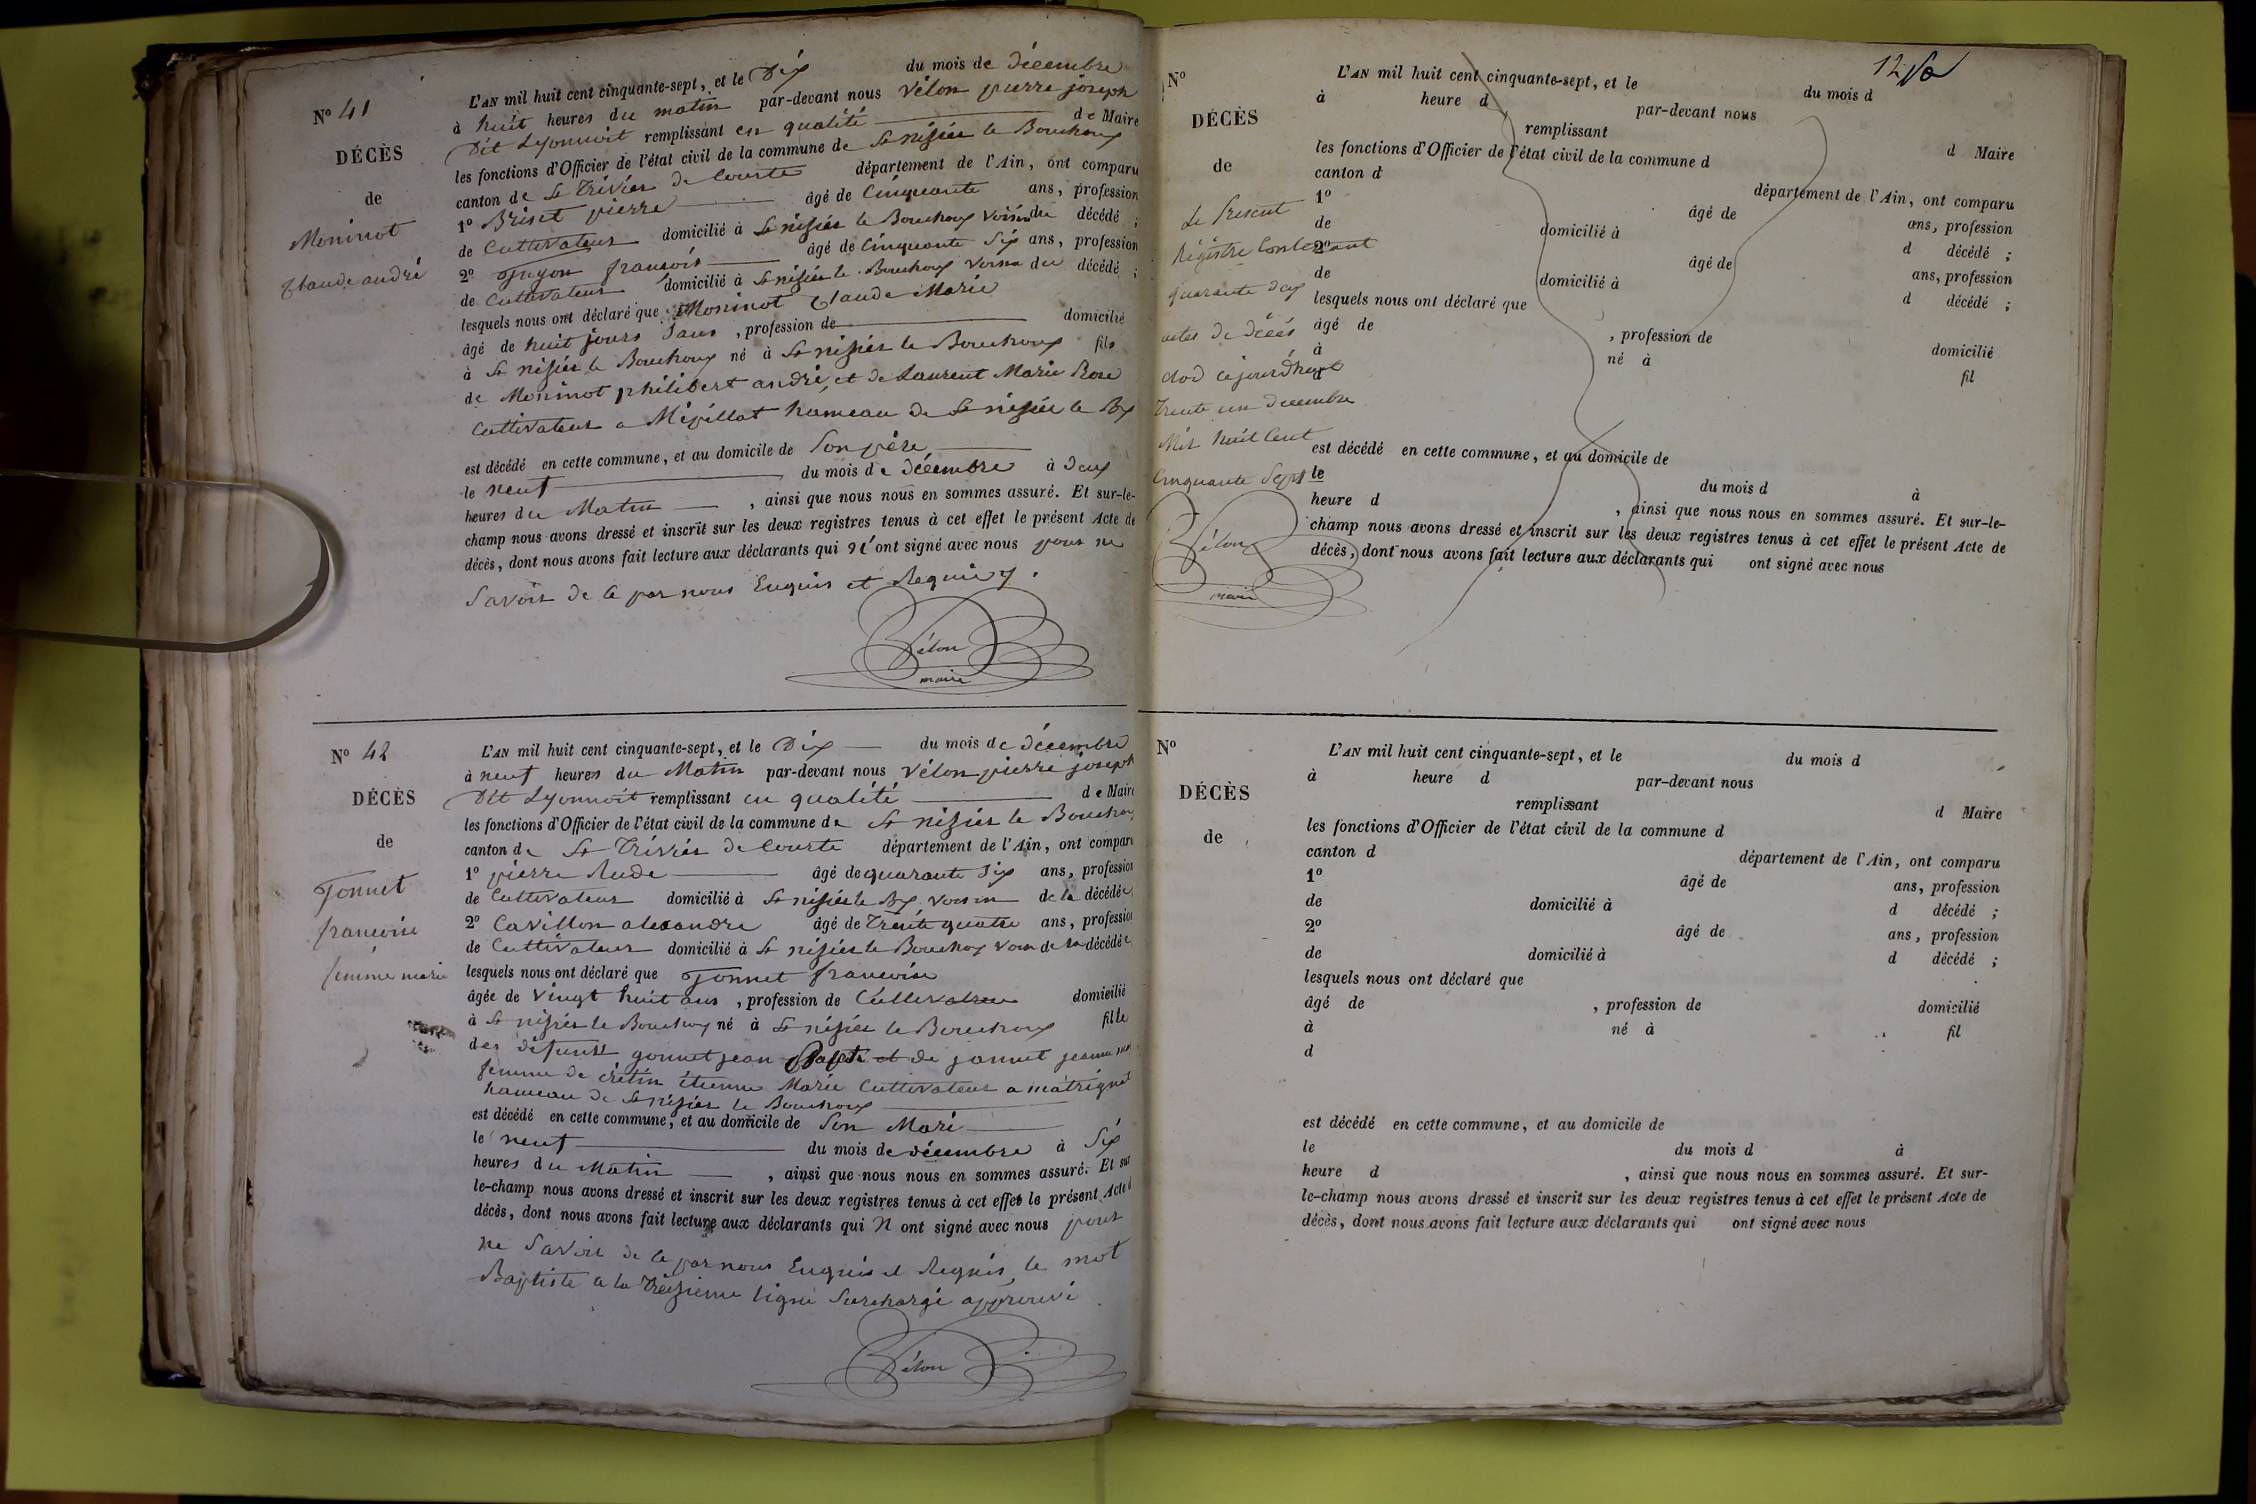 N° 41
DÉCÈS
de
Moninot
Claude andré
L'AN mil huit cent cinquante-sept, et le Dix du mois de décembre
à huit heures du matin par-devant nous Vélon pierre joseph
Dit Lyonnoit remplissant en qualité de Maire
les fonctions d'Officier de l'état civil de la commune de St nizier le Bouchoux
canton de St Trivier de Courte département de l'Ain, ont comparu
1° Briset pierre âgé de Cinquante ans, profession
de Cultivateur domicilié à St nizier le Bouchoux Voisin du décédé ;
2° Guyon francois âgé de Cinquante Six ans, profession
de Cultivateur domicilié à St nizier le Bouchoux Voisin du décédé ;
lesquels nous ont déclaré que Moninot Claude Marie
âgé de huit jours Sans , profession de domicilié
à St nizier le Bouchoux né à St nizier le Bouchoux fils
de Moninot philibert andré, et de Laurent Marie Rose
Cultivateur a Mépillat hameau de St nizier le Bx
est décédé en cette commune, et au domicile de Son père
le neuf du mois de décembre à deux
heures du Matin , ainsi que nous nous en sommes assuré. Et sur-le-
champ nous avons dressé et inscrit sur les deux registres tenus à cet effet le présent Acte de
décès, dont nous avons fait lecture aux déclarants qui n'ont signé avec nous pour ne
Savoir de ce par nous Enquis et Requis.
Vélon
maire
N° 42
DÉCÈS
de
Gonnet
francoise
femme marie
L'AN mil huit cent cinquante-sept, et le Dix du mois de décembre
à neuf heures du Matin par-devant nous Vélon pierre joseph
Dit Lyonnoit remplissant en qualité de Maire
les fonctions d'Officier de l'état civil de la commune de St nizier le Bouchoux
canton de St Trivier de Courte département de l'Ain, ont comparu
1° pierre Rude âgé de quarante Six ans, profession
de Cultivateur domicilié à St nizier le Bx voisin de la décédée
2° Cavillon alexandre âgé de Trente quatre ans, profession
de Cultivateur domicilié à St nizier le Bouchoux de la décédée
lesquels nous ont déclaré que Gonnet francoise
âgée de Vingt huit ans , profession de domicilié
à St nizier le Bouchoux né à St nizier le Bouchoux fille
des défunts gonnet jean Bapte et de
femme de crétin étienne Marie Cultivateur a
hameau de St nizier le Bouchoux
est décédé en cette commune, et au domicile de Son Mari
le neuf du mois de décembre à Six
heures du Matin , ainsi que nous nous en sommes assuré. Et sur
le-champ nous avons dressé et inscrit sur les deux registres tenus à cet effet le présent Acte d
décès, dont nous avons fait lecture aux déclarants qui N ont signé avec nous pour
ne Savoir de ce par nous Enquis et Requis, le mot
Baptiste a la Treizieme ligne Surchargé approuvé
Vélon
N°
DÉCÈS
de
Le Present
Régistre Contenant
quarante deux
actes de décés
clod cejourd'hui
trente un decembre
Mil huit Cent
Cinquante Sept
Vélon
maire
12
L'AN mil huit cent cinquante-sept, et le du mois d
à heure d par-devant nous
remplissant d Maire
les fonctions d'Officier de l'état civil de la commune d
canton d département de l'Ain, ont comparu
1° âgé de ans, profession
de domicilié à d décédé ;
2° âgé de ans, profession
de domicilié à d décédé ;
lesquels nous ont déclaré que
âgé de , profession de domicilié
à né à fil
d
est décédé en cette commune, et au domicile de
le du mois d à
heure d , ainsi que nous nous en sommes assuré. Et sur-le-
champ nous avons dressé et inscrit sur les deux registres tenus à cet effet le présent Acte de
décès, dont nous avons fait lecture aux déclarants qui ont signé avec nous
N°
DÉCÈS
de
L'AN mil huit cent cinquante-sept, et le du mois d
à heure d par-devant nous
remplissant d Maire
les fonctions d'Officier de l'état civil de la commune d
canton d département de l'Ain, ont comparu
1° âgé de ans, profession
de domicilié à d décédé ;
2° âgé de ans, profession
de domicilié à d décédé ;
lesquels nous ont déclaré que
âgé de , profession de domicilié
à né à fil
d
est décédé en cette commune, et au domicile de
le du mois d à
heure d , ainsi que nous nous en sommes assuré. Et sur-
le-champ nous avons dressé et inscrit sur les deux registres tenus à cet effet le présent Acte de
décès, dont nous avons fait lecture aux déclarants qui ont signé avec nous